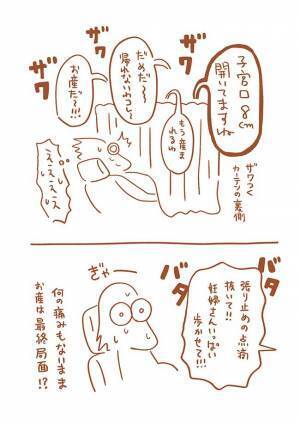 子宮口8cm
開いてますね
ザワ
だめだ〜
帰れないわコレ〜
ザワ
お産だ〜!!!
ザワ
もう産ま
れるわ
ザワつく
カーテンの裏側
えええええ
バタ
バタ
張り止めの点滴
抜いて!!
妊婦さんいっぱい
歩かせて!!!
ぎゃー
何の痛みもないまま
お産は最終局面!?